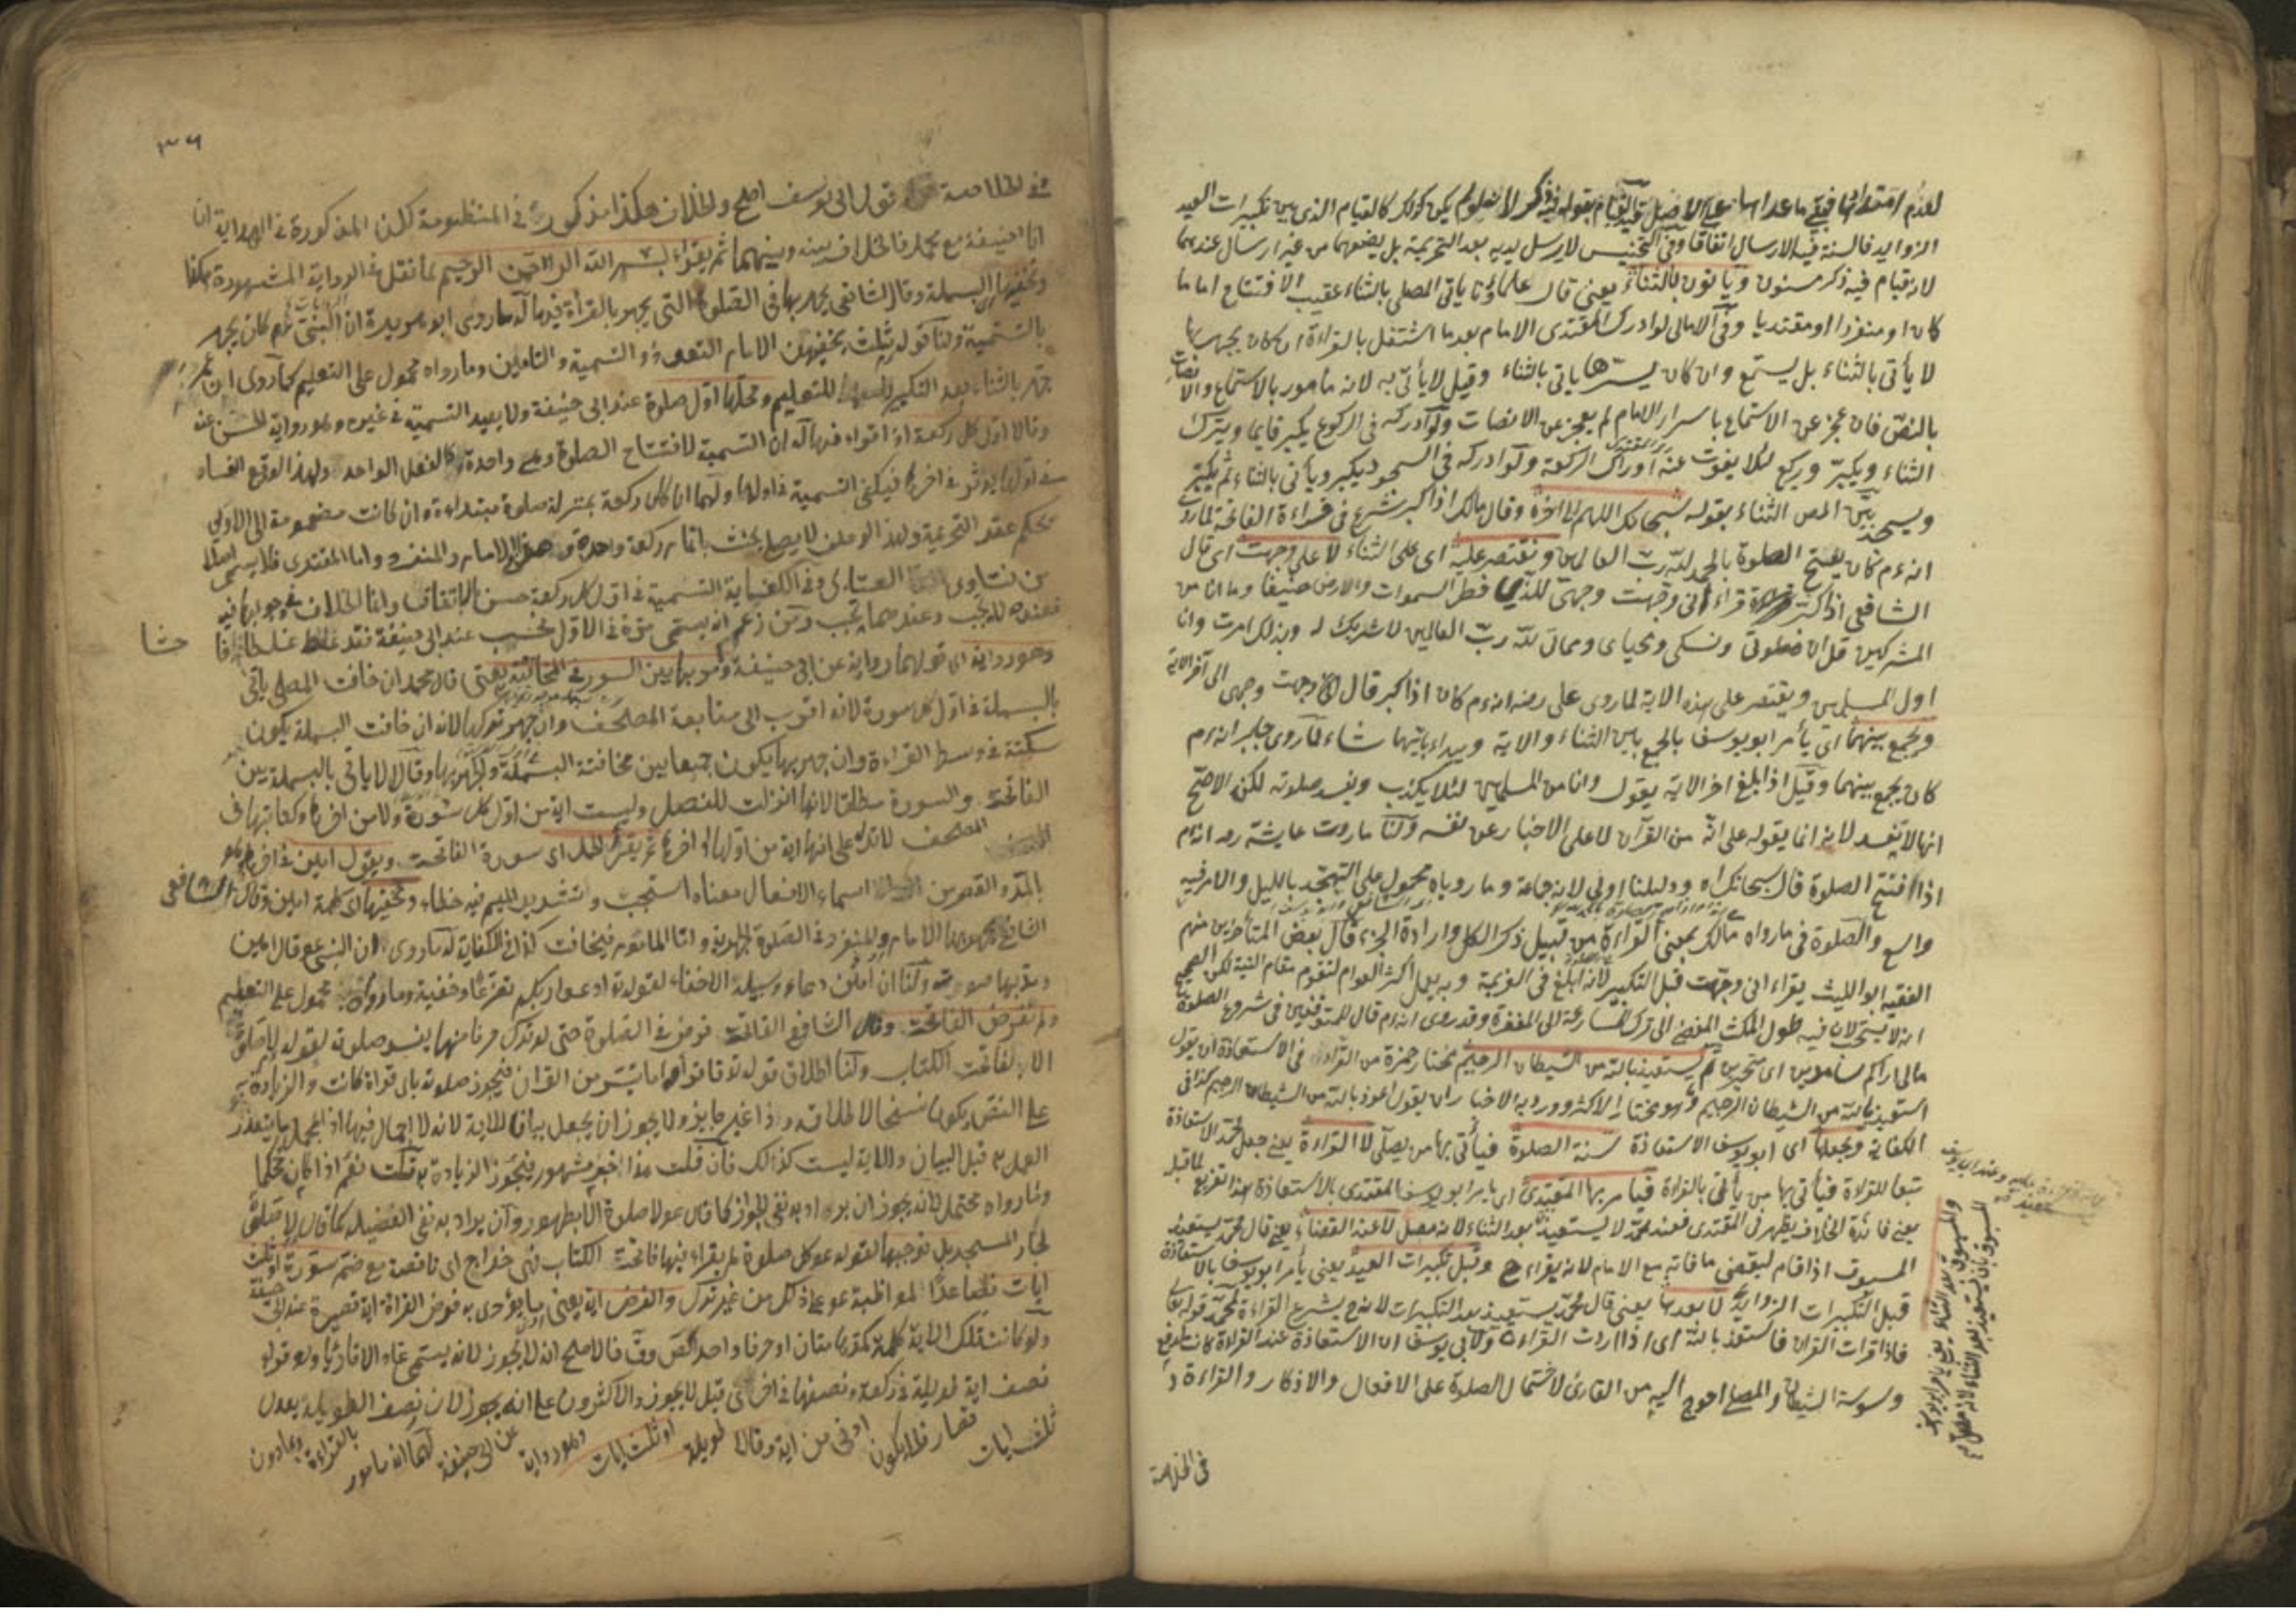 لعدم امتدادها فبقي ما عداها على الاصل فالقيام بقوله فيه ذكر لانه لو لم يكن كذلك كالقيام الذي بين تكبيرات العيد
الزوايد فالسنة فيه الارسال اتفاقا وفي التجنيس لا يرسل يديه بعد التحريمة بل يضعهما من غير ارسال عندهما
لانه قيام فيه ذكر مسنون ويأتون بالثناء يعني قال علماؤنا ياتي المصلي بالثناء عقيب الافتتاح اماما
كان او منفردا او مقتديا وفي الامالي لو ادرك المقتدي الامام بعد ما اشتغل بالقراءة ان كان يجهر بها
لا يأتي بالثناء بل يستمع وان كان يسرها ياتي بالثناء وقيل لا يأتي به لانه مأمور بالاستماع والانصات
بالنص فان عجز عن الاستماع باسرار الامام لم يعجز عن الانصات ولو ادركه في الركوع يكبر قايما ويترك
الثناء ويكبر ويركع لئلا يفوت عنه ادراك الركعة ولو ادركه في السجود يكبر ويأتي بالثناء ثم يكبر
ويسجد بين المص الثناء بقوله سبحانك اللهم الى اخره وقال مالك اذا كبر شرع في قراءة الفاتحة لما روي
انه عم كان يفتتح الصلوة بالحمد لله رب العالمين ويقتصر عليه اي على الثناء لا على وجهت اي قال
الشافعي اذا كبر قراء اني وجهت وجهي للذي فطر السموات والارض حنيفا وما انا من
المشركين قل ان صلوتي ونسكي ومحياي ومماتي لله رب العالمين لا شريك له وبذلك امرت وانا
اول المسلمين ويقتصر على هذه الاية لما روى علي رضه انه عم كان اذا كبر قال اني وجهت وجهي الى آخر الاية
ويجمع بينهما اي يأمر ابو يوسف بالجمع بين الثناء والاية ويبداء بايهما شاء لما روى جابر انه عم
كان يجمع بينهما وقيل اذا بلغ اخر الاية يقول وانا من المسلمين لئلا يكذب ويفسد صلوته لكن الاصح
انها لا تفسد لانه انما يقوله على انه من القرآن لا على الاخبار عن نفسه ولنا ما روت عايشة رضه انه عم
اذا افتتح الصلوة قال سبحانك اه ودليلنا اولى لانه جماعة وما روياه محمول على التهجد بالليل والامر فيه
واسع والصلوة في ما رواه مالك بمعنى القراءة من قبيل ذكر الكل وارادة الجزء قال بعض المتأخرين منهم
الفقيه ابو الليث يقراء اني وجهت قبل التكبير لانه ابلغ في العزيمة وبه يعمل اكثر العوام لتقوم مقام النية لكن الصحيح
انه لا يستحب لان فيه طول المكث المفضي الى ترك المسارعة الى المغفرة وقد روي انه عم قال للمتوقفين في شروع الصلوة
مالي اراكم سامدين اي متحيرين ثم يستعيذ بالله من الشيطان الرجيم مختار حمزة من القراء في الاستعاذة ان يقول
استعيذ بالله من الشيطان الرجيم وهو مختار الاكثر وورد به الاخبار ان يقول اعوذ بالله من الشيطان الرجيم كذا في
الكفاية ويجعلها اي ابو يوسف الاستعاذة سنة الصلوة فيأتي بها من يصلي لا القراءة يعني جعل محمد الاستعاذة
تبعا للقراءة فيأتي بها من يأتي بالقراة فيأمر بها المقتدي اي يامر ابو يوسف المقتدي بالاستعاذة هذا تفريع لما قبله
يعني فائدة الخلاف يظهر في المقتدي فعند محمد لا يستعيذ بعد الثناء لانه مصل لا عند القضاء يعني قال محمد يستعيذ
المسبوق اذا قام ليقضي ما فاته مع الامام لانه يقراء ح وقبل تكبيرات العيد يعني يأمر ابو يوسف بالاستعاذة
قبل التكبيرات الزوايد لا بعدها يعني قال محمد يستعيذ بعد التكبيرات لانه ح يشرع القراءة لمحمد قوله تعالى
فاذا قرات القران فاستعذ بالله اي اذا اردت القراءة ولابي يوسف ان الاستعاذة عند القراءة كانت لدفع
وسوسة الشيطان والمصلي احوج اليه من القارئ لاشتمال الصلوة على الافعال والاذكار والقراءة
في الخلاصة
والمسبوق بعد الثناء يعني يأمر ابو يوسف
المسبوق بان يستعيذ بعد الثناء لانه مصل
٣٦
في الخلاصة قول ابي يوسف اصح والخلاف هكذا مذكور في المنظومة لكن المذكورة في الهداية ان
ابا حنيفة مع محمد فالخلاف بينه وبينهما ثم يقراء بسم الله الرحمن الرحيم لما نقل في الرواية المشهورة هكذا
ويخفيها اي البسملة وقال الشافعي يجهر بها في الصلوة التي يجهر بالقراءة فيها له ما روى ابو هريرة ان النبي عم كان يجهر
بالتسمية ولنا قوله ثلث يخفيهن الامام التعوذ والتسمية والتامين وما رواه محمول على التعليم كما روي ان عمر
جهر بالثناء بعد التكبير للتعليم ومحلها اول صلوة عند ابي حنيفة ولا يعيد التسمية في غيره وهو رواية الحسن عنه
وقالا اول كل ركعة اذا قراء فيها له ان التسمية لافتتاح الصلوة وهي واحدة كالفعل الواحد ولهذا الوقع الفساد
في اولها يؤثر في اخرها فيكفي التسمية في اولها ولهما ان كل ركعة بمنزلة صلوة مبتداءة وان كانت مضمومة الى الاولى
بحكم عقد التحريمة ولهذا لو حلف لا يصلي يحنث باتمام ركعة واحدة وهذا الامام والمنفرد واما المقتدي فلا يسمي اصلا
من فتاوى العتابي وفي الكفاية التسمية في اول كل ركعة حسن بالاتفاق وانما الخلاف في وجوبها فيه
فعنده لا يجب وعندهما يجب ومن زعم انه يسمي مرة في الاول فحسب عند ابي حنيفة فقد غلط غلطا فاحشا
وهو رواية اي قولهما رواية عن ابي حنيفة ويأتي بها بين السور في المخافتة يعني قال محمد ان خافت المصلي ياتي
بالبسملة في اول كل سورة لانه اقرب الى متابعة المصحف وان جهر تركها لانه ان خافت البسملة يكون
سكتة في وسط القراءة وان جهر بها يكون جمعا بين مخافتة البسملة والجهر بها وقالا لا ياتي بالبسملة بين
الفاتحة والسورة مطلقا لانها انزلت للفصل وليست اية من اول كل سورة ولا من اخرها وكتابتها في
المصحف لا تدل على انها اية من اولها او اخرها ثم يقرأ الحمد اي سورة الفاتحة ويقول امين في اخرها وهو
بالمد والقصر من اسماء الافعال معناه استجب وتشديد الميم فيه خطاء ويخفيها اي كلمة امين وقال الشافعي
يجهر بها الامام والمنفرد في الصلوة الجهرية واما الماموم فيخافت كذا في الكفاية له ما روي ان النبي ع قال امين
ومد بها صوته ولنا ان امين دعاء وسبيله الاخفاء لقوله تع ادعوا ربكم تضرعا وخفية وما رواه محمول على التعليم
ولم تفرض الفاتحة وقال الشافعي الفاتحة فرض في الصلوة حتى لو ترك حرفا منها يفسد صلوته لقوله ع لا صلوة
الا بفاتحة الكتاب ولنا اطلاق قوله تع فاقرأوا ما تيسر من القران فيجوز صلوته باي قراة كانت والزيادة
على النص يكون نسخا لاطلاقه وذا غير جايز ولا يجوز ان يجعل بيانا للاية لانه لا اجمال فيها اذ المجمل ما يتعذر
العمل به قبل البيان والاية ليست كذالك فان قلت هذا خبر مشهور فيجوز الزيادة به قلت نعم اذا كان محكما
وما رواه محتمل لانه يجوز ان يراد به نفي الجواز كما قال ع لا صلوة الا بطهور وان يراد به نفي الفضيلة كما قال لا صلوة
لجار المسجد بل نوجبها لقوله ع كل صلوة لم يقراء فيها فاتحة الكتاب فهي خداج اي ناقصة مع ضم سورة او ثلث
ايات فصاعدا لمواظبة ع على ذلك من غير ترك والفرض اية يعني ما يؤدى به فرض القراة اية قصيرة عند ابي حنيفة
ولو كانت تلك الاية كلمة كمدهامتان او حرفا واحدا كص وق فالاصح انه لا يجوز لانه يسمى عاد لا قارئا ولو قراء
نصف اية طويلة في ركعة ونصفها في اخرى قيل لا يجوز والاكثرون على انه يجوز لان نصف الطويلة يعدل
ثلث ايات قصار فلا يكون ادنى من اية وقالا طويلة او ثلث ايات وهو رواية عن ابي حنيفة لهما انه مامور بالقراءة وبما دون